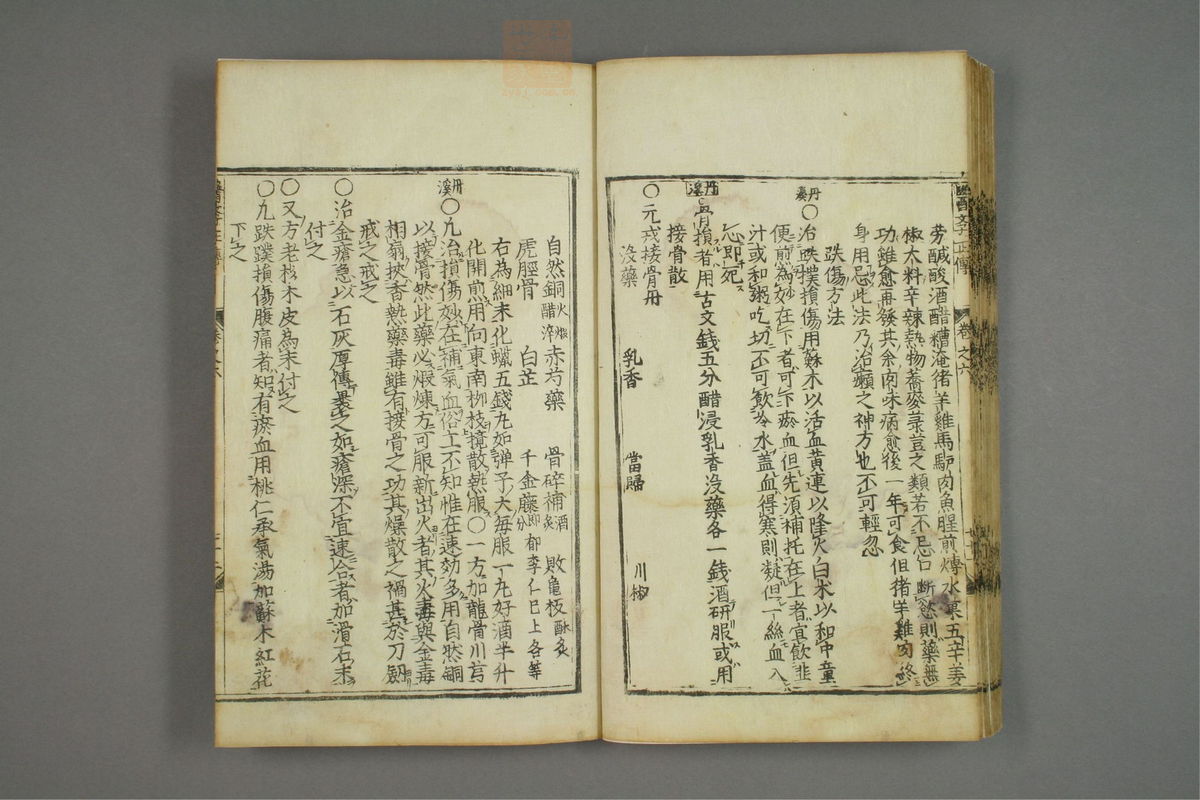 醫學正傳 卷之六
劳鹹酸酒醋糟淹猪羊雞馬馿肉魚腥煎煿水菓五辛姜
椒大料辛辣熱物蕎麥菉豆之類若不忌口断慾則藥無
功雖愈再發其余肉味病愈後一年可食但猪羊雞肉終
身用忌此法乃治癩之神方也不可輕忽
跌傷方法
丹溪○治跌撲損傷用蘇木以活血黄連以降火白术以和中童
便煎為妙在下者可下瘀血但先須補托在上者宜飲韭
汁或和粥吃切不可飲冷水盖血得寒則凝但一絲血入
心即死
丹溪骨損者用古文錢五分醋浸乳香没藥各一錢酒研服或用
接骨散
○元戎接骨丹
没藥 乳香 當歸 川椒
自然銅火煅醋淬 赤芍藥 骨碎補酒炙 敗龜板酥炙
虎脛骨 白芷 千金藤即郁李仁已上各等分
右為細末化蠟五錢丸如弹子大每服一丸好酒半升
化開煎用向東南柳枝攪散熱服○一方加龍骨川芎
丹溪○凡治損傷妙在補氣血俗工不知惟在速効多用自然銅
以接骨然此藥必煅煉方可服新出火者其火毒與金毒
相扇挾香熱藥毒雖有接骨之功其燥散之禍甚於刀劔
戒之戒之
○治金瘡急以石灰厚傅裹之如瘡深不宜速合者加滑石末
付之
○又方老杉木皮為末付之
○凡跌蹼損傷腹痛者知有瘀血用桃仁承氣湯加蘇木紅花
下之